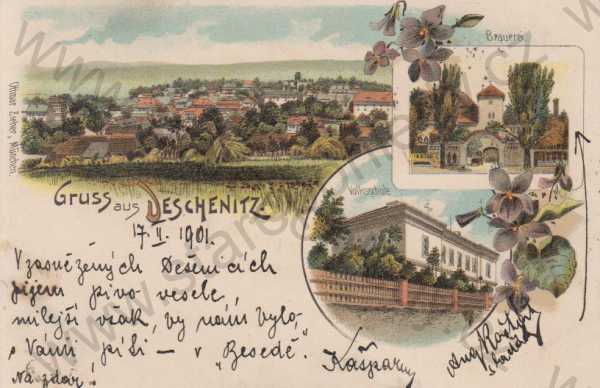 Brauerei
Ottmar Zieher, München.
Gruss aus DESCHENITZ
Volksschule
17. II. 1901.
V zasněžených Dešenicích
pijem pivo vesele,
milejší však, by nám bylo,
s Vámi píti – v "Besedě".
Na zdar!
Kašparův